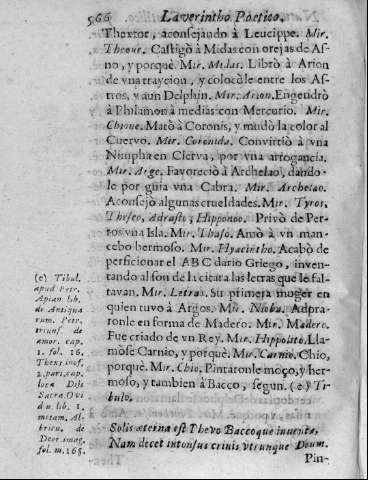 566 Laverintho Poetico.
Thextor, aconsejandò à Leucippe. Mir.
Theoue. Castigò à Midas con orejas de As-
no, y porquè. Mir. Midas. Librò à Arion
de vna traycion, y colocòle entre los As-
tros, y aun Delphin. Mir. Arion. Engendrò
à Philamon à medias con Mercurio. Mir.
Chione. Matò à Coronis, y mudò la color al
Cuervo. Mir. Coronida. Convirtiò à vna
Nimpha en Cierva, por vna arrogancia.
Mir. Arge. Favoreciò à Archelao, dando-
le por guia vna Cabra. Mir. Archelao.
Aconsejò algunas crueldades. Mir. Tyros,
Theseo, Adrasto, Hipponoo. Privò de Pet-
ros vna Isla. Mir. Thaso. Amò à vn man-
cebo hermoso. Mir. Hyacintho. Acabò de
perficionar el ABC dario Griego, inven-
tando al son de la citara las letras que le fal-
tavan. Mir. Letras. Su primera muger en
quien tuvo à Argos. Mir. Niobe. Adora-
ronle en forma de Madero. Mir. Madero.
Fue criado de vn Rey. Mir. Hippolito. Lla-
mòse Carnio, y porquè. Mir. Carnio. Chio,
porquè. Mir. Chio. Pintaronle moço, y her-
moso, y tambien à Bacco, segun. (e) Ti-
bulo.
Solis æterna est Thevo Baccoque iuventa,
Nam decet intonsus crinis vtrunque Deum.
Pin-
(e) Tibul.
apud Petr.
Apian lib.
de Antiqua
rum. Petr.
triunf. de
amor. cap.
1. fol. 16.
Thext. in of.
2. part. cap.
loca Dijs
Sacra. Ovi
d u. lib. 1.
metam. Al-
bricu. de
Deor imag.
fol. m. 165.